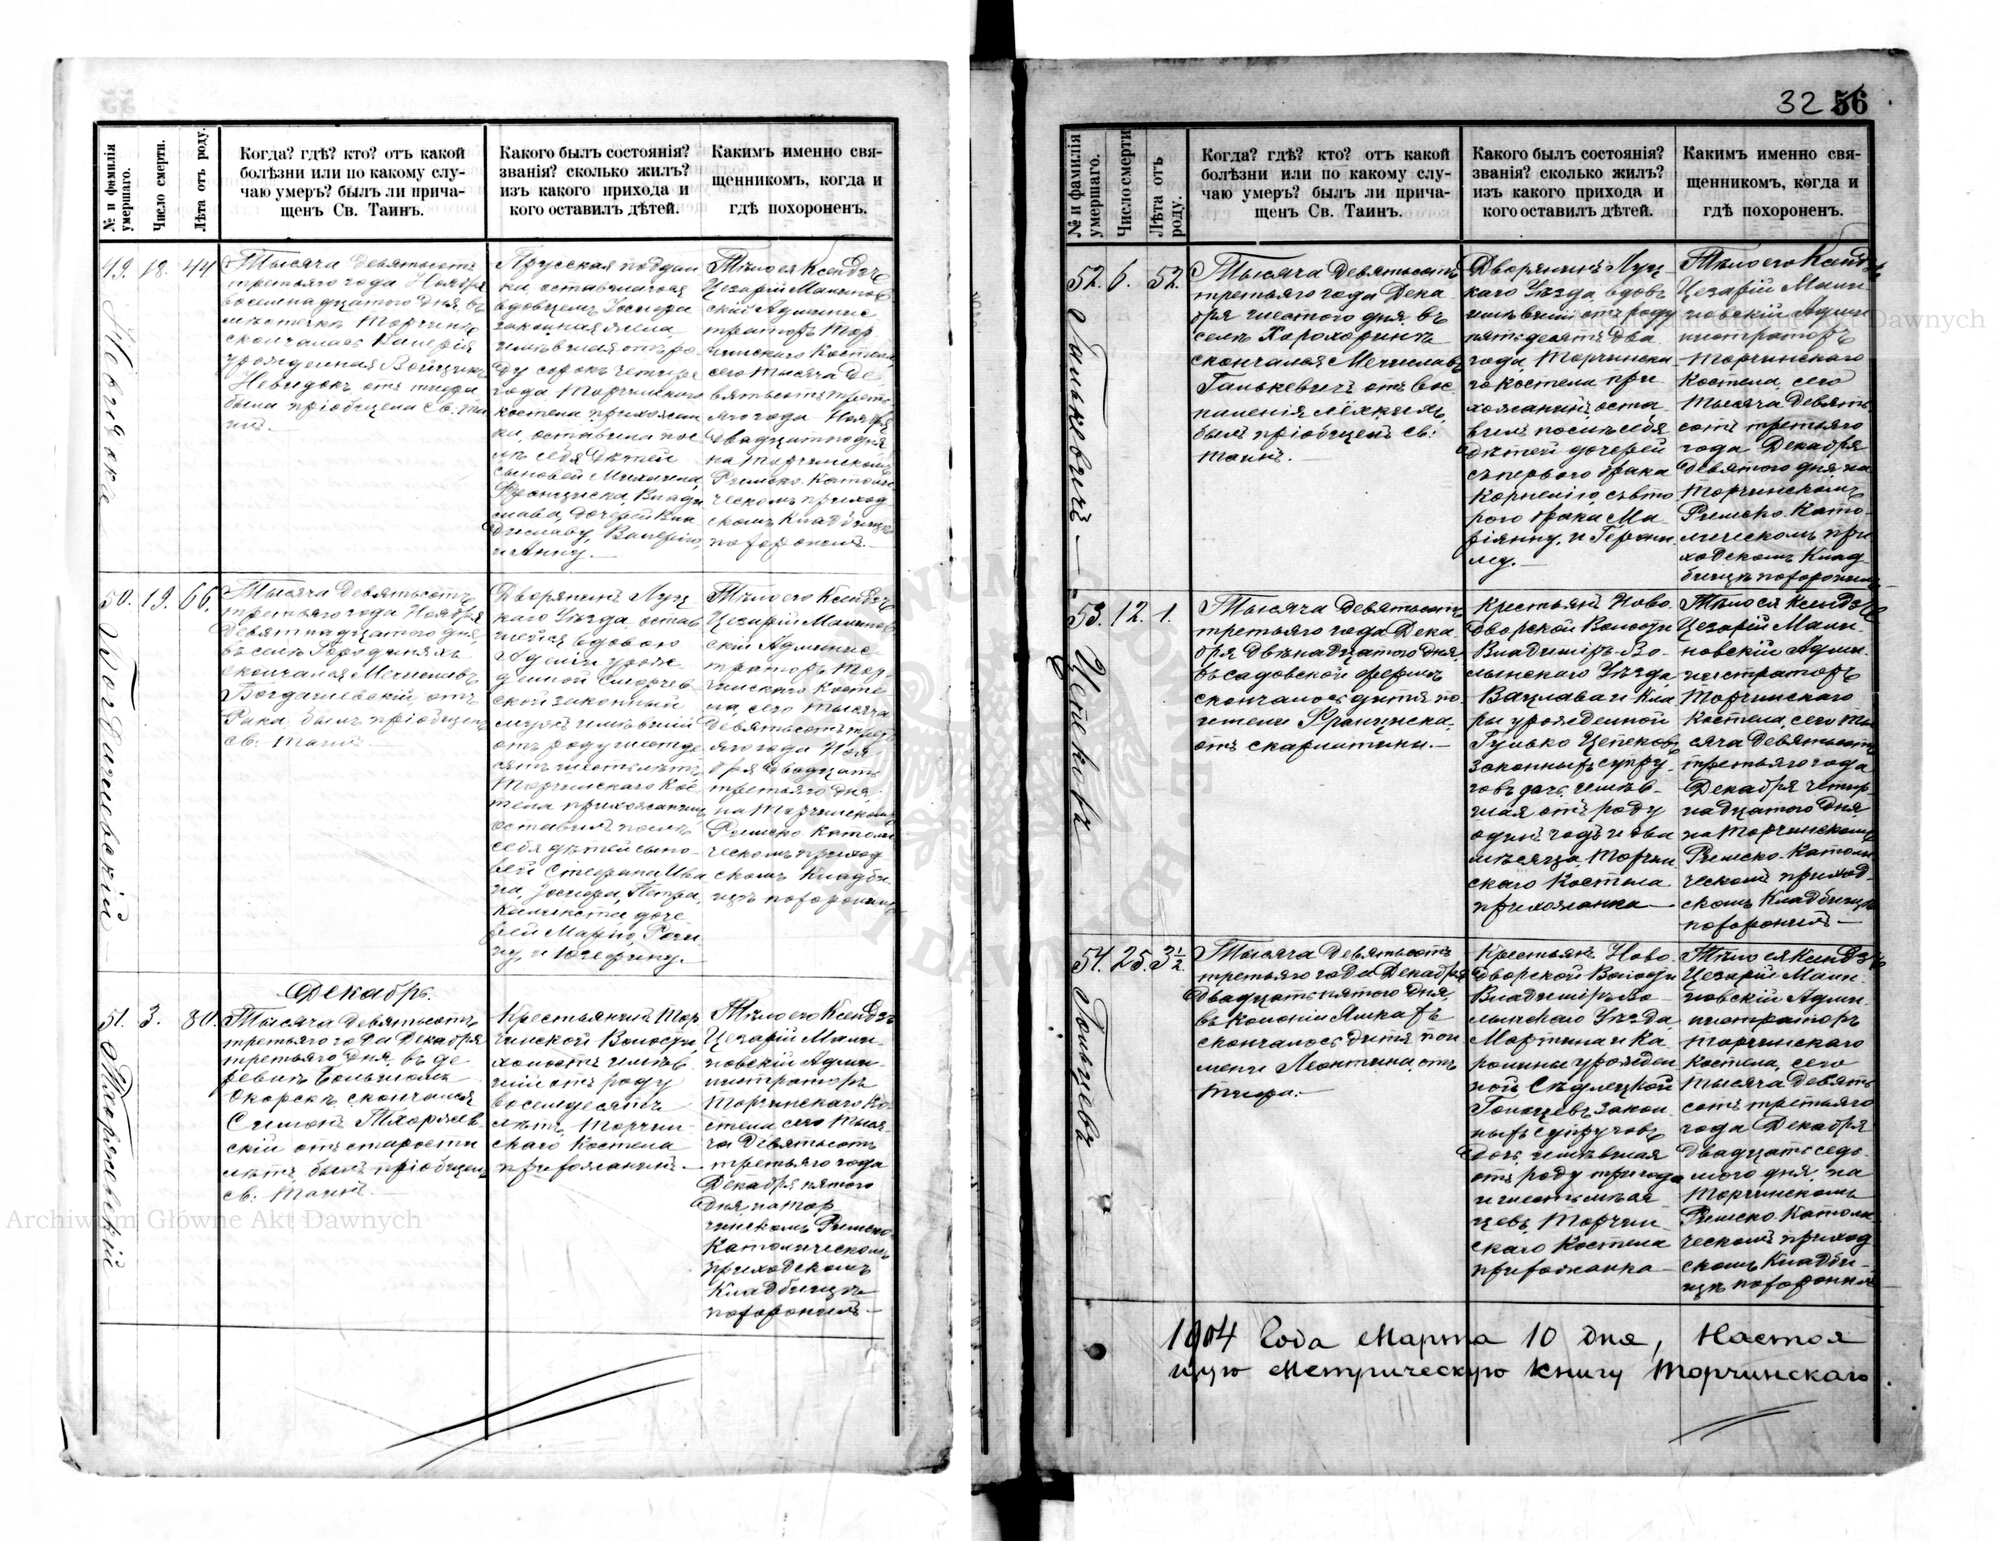 № и фамилія умершаго.
Число смерти.
Лѣта отъ роду.
Когда? гдѣ? кто? отъ какой
болѣзни или по какому слу-
чаю умеръ? былъ ли прича-
щенъ Св. Таинъ.
Какого былъ состоянія?
званія? сколько жилъ?
изъ какого прихода и
кого оставилъ дѣтей.
Какимъ именно свя-
щенникомъ, когда и
гдѣ похороненъ.
49. 18. 44.
Тысяча девятьсотъ
третьяго года Ноября
восемнадцатого дня въ
мѣстечкѣ Торчинѣ
скончалась Валерія
урожденная
отъ тифа
была пріобщена Св. Та
инъ.
Прусская поддан
ка оставшагося
вдовцемъ Іосифа
законная жена
имѣвшая отъ ро
ду сорокъ четыре
года Торчинскаго
костела прихожан
ка, оставила пос
лѣ себя дѣтей
сыновей Михаила,
Франциска, Влади
слава, дочерей Вла
диславу, Валерію,
и Анну.—
Тѣло ея Ксендзъ
Цезарій Малинов
скій Админис
траторъ Тор
чинскаго Костела,
сего тысяча де
вятьсотъ треть
яго года Ноября
двадцатого дня
на Торчинскомъ
Римско-Католи
ческомъ приход
скомъ Кладбищѣ
похоронилъ.—
50. 19. 66.
Тысяча девятьсотъ
третьяго года Ноября
девятнадцатого дня
въ селѣ Городиняхъ
скончался Мечиславъ
Богдашевскій отъ
Рака былъ пріобщенъ
св. Таинъ—
Дворянинъ Луц
каго Уѣзда, остав
шейся вдовою
урож
денной
ской законный
мужъ имѣвшій
отъ роду шестьде
сятъ шесть лѣтъ
Торчинскаго Кос
тела прихожанинъ
оставилъ послѣ
себя дѣтей сыно
вей Стефана Ива
на, Іосифа, Петра,
доче
рей Марію,
и Юзефину.—
Тѣло его Ксендзъ
Цезарій Малинов
скій Админис
траторъ Тор
чинскаго Косте
ла, сего тысяча
девятьсотъ треть
яго года Ноя
бря двадцать
третьяго дня,
на Торчинскомъ
Римско-Католи
ческомъ приход
скомъ Кладби
щѣ похоронилъ
Декабрь.
51. 3. 80.
Тысяча девятьсотъ
третьяго года Декабря
третьяго дня, въ де
ревнѣ Большомъ
Окорскѣ, скончался
Симонъ Тхоржев
скій отъ старости
лѣтъ, былъ пріобщенъ
св. Таинъ.—
Крестьянинъ Тор
чинской Волости,
холостъ имѣв
шій отъ роду
восемдесятъ
лѣтъ Торчин
скаго Костела
прихожанинъ.—
Тѣло его Ксендзъ
Цезарій Мали
новскій Адми
нистраторъ
Торчинскаго Ко
стела сего тыся
ча девятьсотъ
третьяго года
Декабря пятого
дня, на Тор
чинскомъ Римско
Католическомъ
приходскомъ
Кладбищѣ
похоронилъ—
Тхоржевскій
32 56
№ и фамилія умершаго.
Число смерти
Лѣта отъ роду.
Когда? гдѣ? кто? отъ какой
болѣзни или по какому слу-
чаю умеръ? былъ ли прича-
щенъ Св. Таинъ.
Какого былъ состоянія?
званія? сколько жилъ?
изъ какого прихода и
кого оставилъ дѣтей.
Какимъ именно свя-
щенникомъ, когда и
гдѣ похороненъ.
52. 6. 52.
Ганькевичъ—
Тысяча девятьсотъ
третьяго года Дека
бря шестого дня въ
селѣ Хорохоринѣ
скончался Мечиславъ
Ганькевичъ отъ вос
паленія лёхкихъ,
былъ пріобщенъ св.
Таинъ.—
Дворянинъ Луц
каго Уѣзда, вдовъ
имѣвшій отъ роду
пятьдесятъ два
года, Торчинска
го костела при
хожанинъ, оста
вилъ послѣ себя
дѣтей дочерей
съ первого брака
Корнелію съ вто
рого брака Ма
ріянну, и Герони
му.—
Тѣло его Ксендзъ
Цезарій Мали
новскій Адми
нистраторъ
Торчинскаго
Костела, сего
тысяча девять
сотъ третьяго
года Декабря
девятого дня на
Торчинскомъ
Римско-Като
лическомъ при
ходскомъ Клад
бищѣ похоронилъ
53. 12. 1.
Цепековъ
Тысяча девятьсотъ
третьяго года Дека
бря двѣнадцатого дня,
въ садовской фермѣ
скончалось дитя по
имени Франциска,
отъ скарлатины.—
Крестьянъ Ново
дворской Волости
Владиміръ-Во
лынского Уѣзда
Вацлава и Кла
ры урожденной
Гулько Цепековъ
законныхъ супру
говъ дочь имѣв
шая отъ роду
одинъ годъ и два
мѣсяца, Торчин
скаго Костела
прихожанка—
Тѣло ея Ксендзъ
Цезарій Мали
новскій Адми
нистраторъ
Торчинскаго
Костела, сего ты
сяча девятьсотъ
третьяго года
Декабря четыр
надцатого дня
на Торчинскомъ
Римско-Католи
ческомъ приход
скомъ Кладбищѣ
похоронилъ—
54. 25. 3½.
Тысяча девятьсотъ
третьяго года Декабря
двадцать пятого дня,
въ колоніи Ямкахъ
скончалось дитя по и
мени Леонтина, отъ
тифа.—
Крестьянъ Ново
дворской Волости
Владиміръ-Во
лынскаго Уѣзда,
Мартина и Ка
ролины урожден
ной Сѣдлецкой
закон
ныхъ супруговъ
дочь, имѣвшая
отъ роду три года
и шесть мѣся
цевъ, Торчин
скаго Костела
прихожанка—
Тѣло ея Ксендзъ
Цезарій Мали
новскій Адми
нистраторъ
Торчинскаго
Костела, сего
тысяча девять
сотъ третьяго
года Декабря
двадцать седь
мого дня, на
Торчинскомъ
Римско-Католи
ческомъ приход
скомъ Кладби
щѣ похоронилъ
1904 года Марта 10 дня, Настоя
щую Метрическую книгу Торчинскаго
Archiwum Główne Akt Dawnych
Archiwum Główne Akt Dawnych